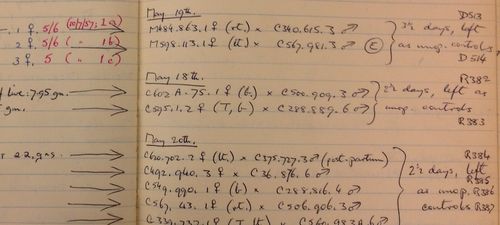 1 ♀ 5/6 (10/7/57; 1a)
2 ♀ 5/6 ( " 1b)
3 ♀ 5 ( " 1c)
live: 7.95 gm.
gm.
22 gms.
May 19th.
D513
M484.863.1 ♀ (rt.) × C340.615.3 ♂ 3½ days, left
M598.113.1 ♀ (lt) × C567.981.3 ♂ as unop. controls
D514
May 18th.
R382
C602A.75.1 ♀ (b.) × C500.909.3 ♂ 2½ days, left as
C595.1.2 ♀ (T, b.) × C288.889.6 ♂ unop. controls
R383
May 20th.
C620.702.2 ♀ (lt.) × C375.727.3 ♂ (post-partum) R384
C492.940.3 ♀ × C36.876.6 ♂ 2½ days, left R385
C549.990.1 ♀ (b) × C288.816.4 ♂ as unop. R386
C567.43.1 ♀ (rt.) × C506.906.3 ♂ controls R387
C339.737.1 ♀ (T, lt) × C360.983A.6 ♂